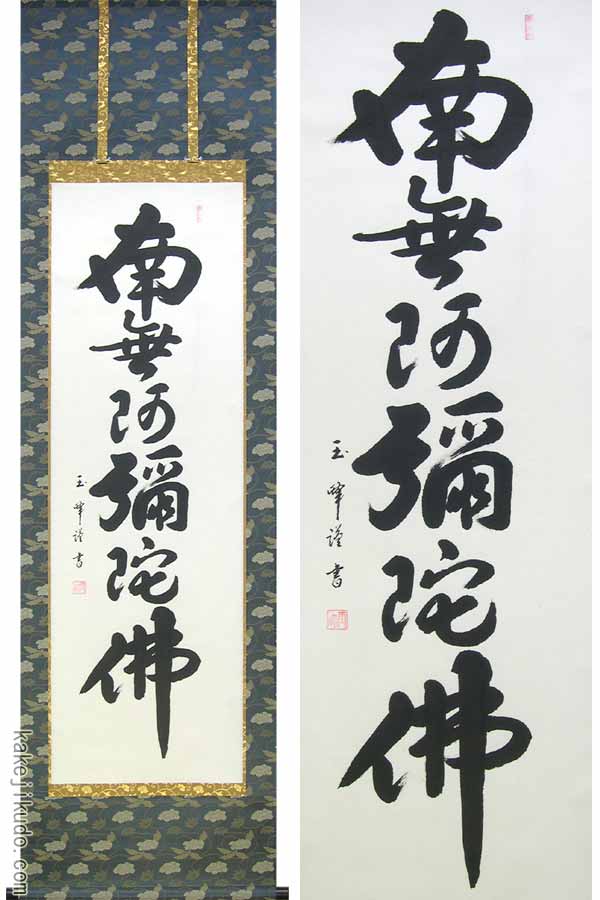 南無阿彌陀佛
玉峰謹書
南無阿彌陀佛
玉峰謹書
kakejikudo.com